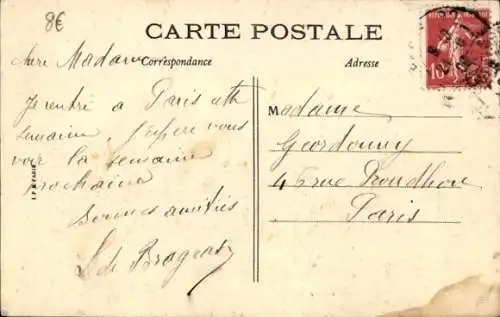 8€
CARTE POSTALE
Correspondance
Adresse
Chère Madame
Je rentre à Paris cette
semaine. J'espère vous
voir la semaine
prochaine
Bonnes amitiés
S de
Madame
46 rue Proudhon
Paris
10